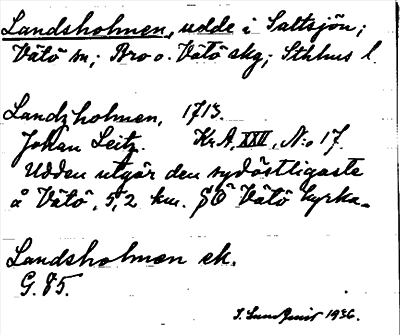 Landsholmen, udde i Saltsjön;
Vätö sn; Bro o. Vätö skg; Sthlms l.
Landzholmen, 1713.
Johan Leitz. KrA, XXII, N:o 17.
Udden utgör den sydöstligaste
å Vätö, 5,2 km. SÖ Vätö kyrka.
Landsholmen ek.
G. 85.
1936.